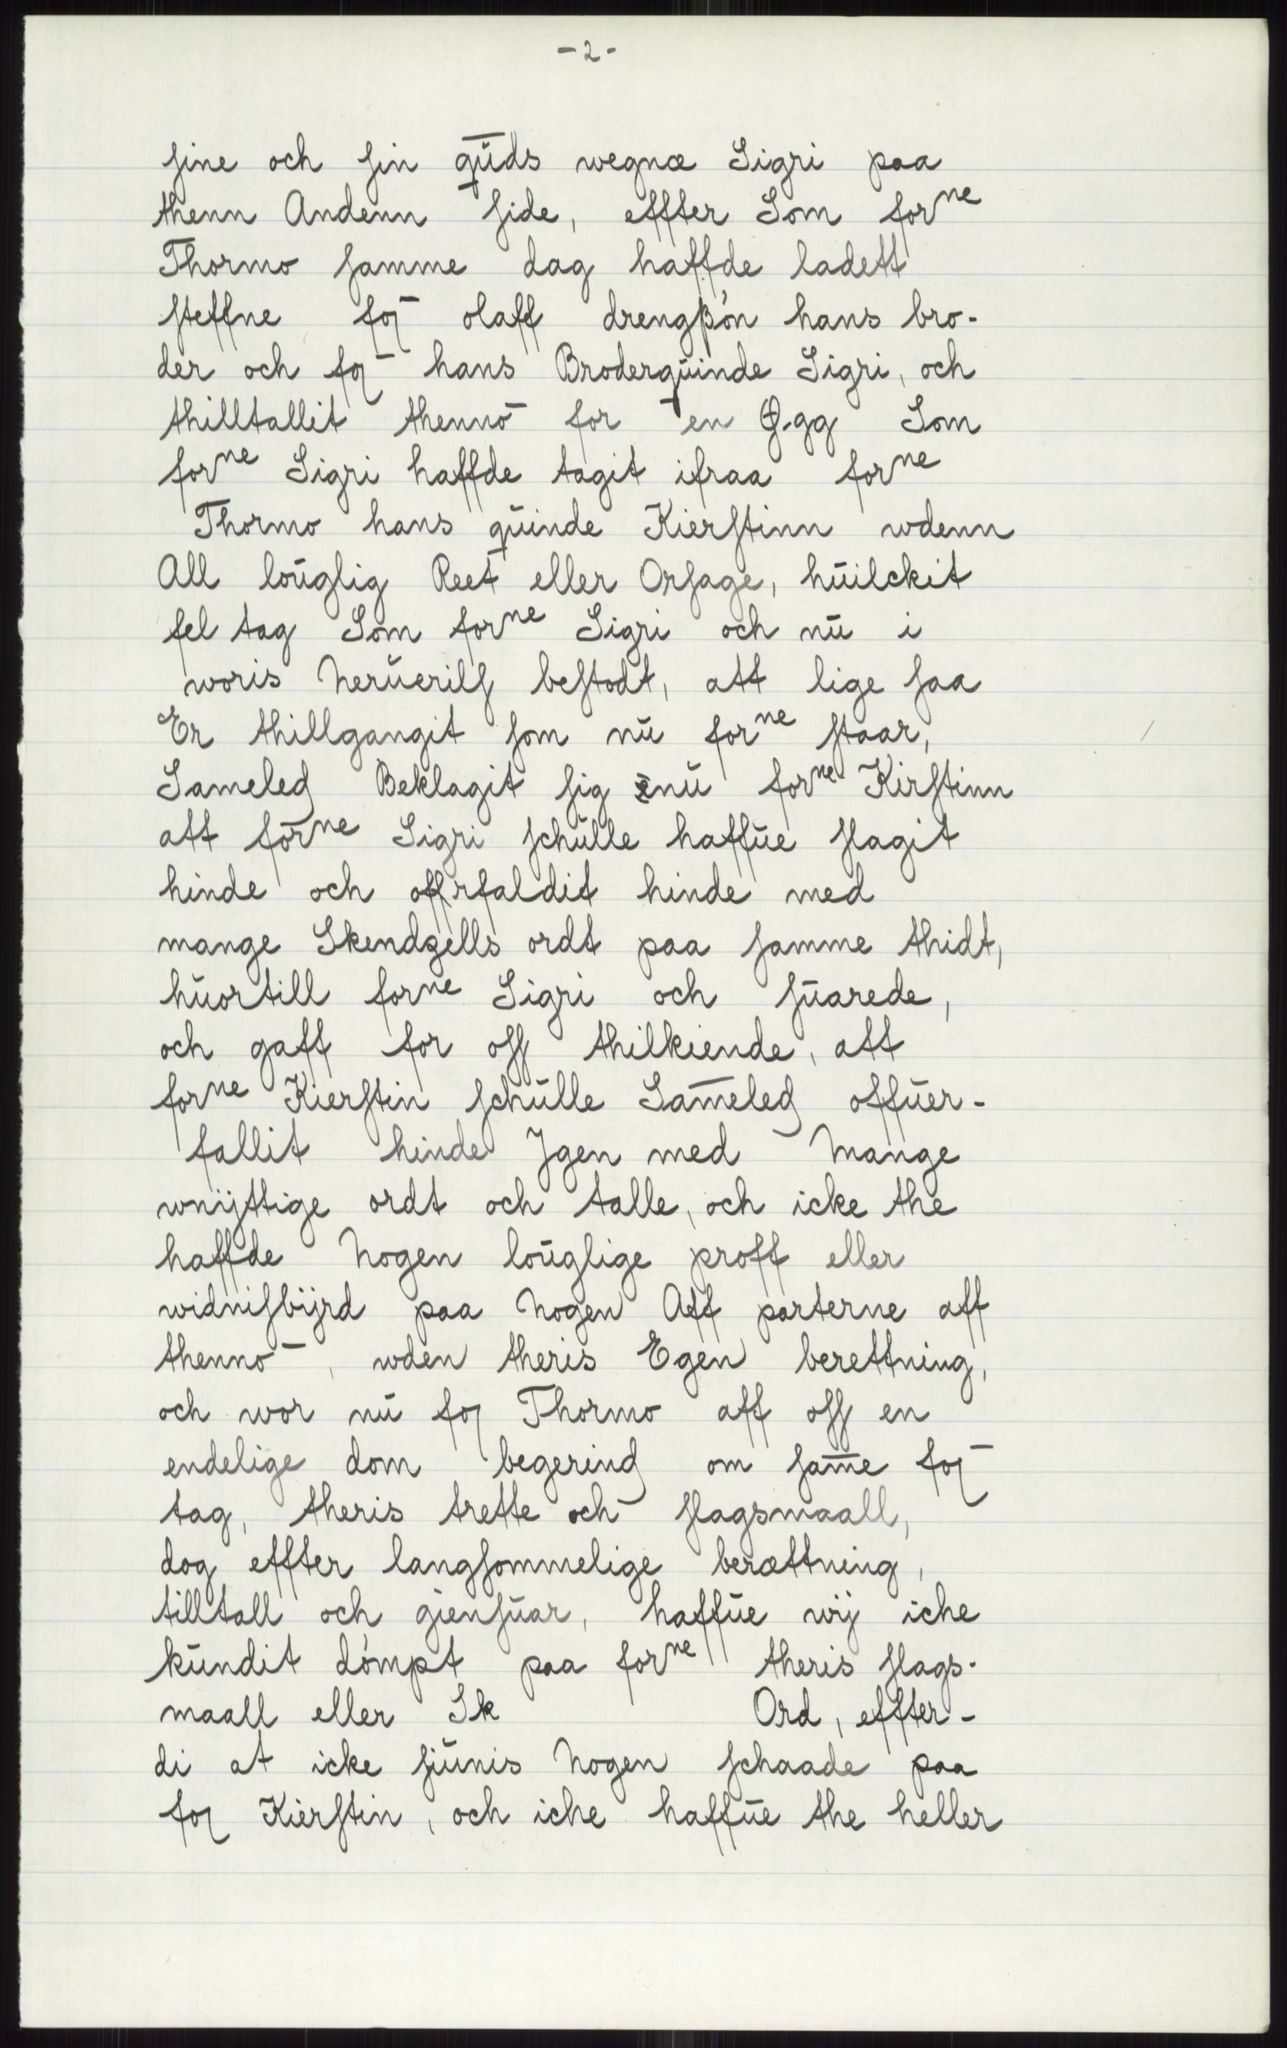 - 2 -
sine och sin qūīds wegnæ Sigri paa
thenn Andenn side, effter Som forne
Thormo samme dag haffde ladett
steffne foṝ olaff drengßón hans bro-
der och foṝ hans Broderqūinde Sigri, och
thilltallit thennō for en Ø.gg Som
forne Sigri haffde tagit ifraa forne
Thormo hans qūinde Kierstinn wdenn
All loūglig Reet eller Orsage, hūilckit
fel tag Som forne Sigri och nū i
woris Neruerils bestodt, att lige saa
Er thillgangit som nū forne staar,
Sameled Beklagit sig nū forne Kirstinn
att forne Sigri schūlle haffūe slagit
hinde och offrfaldit hinde med
mange Skendzells ordt paa samme thidt,
hūortill forne Sigri och sūarede,
och gaff for oss thilkiende, att
forne Kierstin schūlle Sam̄eled offūer-
fallit hinde Jgen med Mange
wnÿttige ordt och talle, och icke the
haffde Nogen loūglige proff eller
widnisbÿrd paa Nogen Aff parterne aff
thennō, wden theris Egen berettning,
och wor nū foꝛ Thormo aff oss en
endelige dom begering om sam̄e foṝ
tag, theris trette och slagsmaall,
dog effter langsommelige berættning,
tilltall och giensūar, haffūe wij iche
kūndit dómpt paa forne theris slags-
maall eller Sk Ord, effter-
di at icke siūnis Nogen schaade paa
foꝛ Kierstin, och iche haffūe the heller